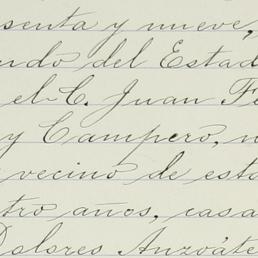 senta y nueve,
ndo del Estad
el C. Juan Fe
y Campero, n
vecino de esta
tro años, casa
Dolores Anzoáte